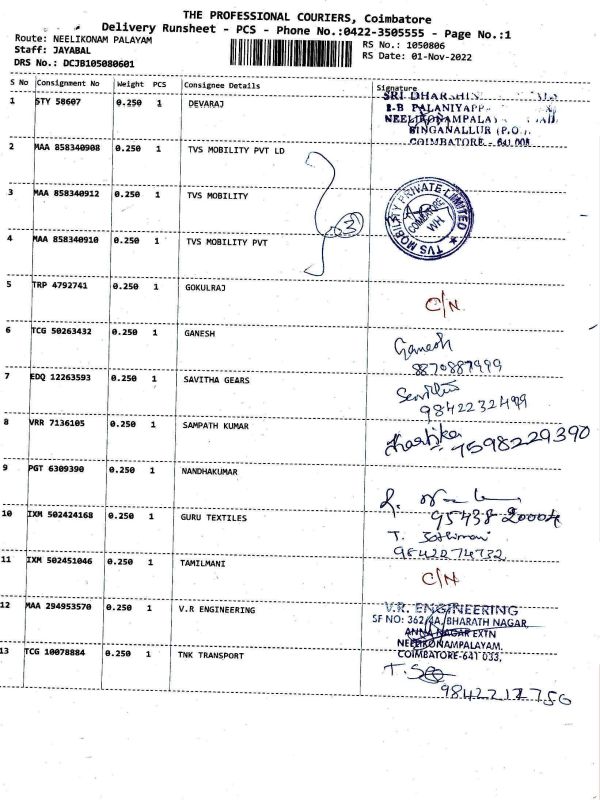 THE PROFESSIONAL COURIERS, Coimbatore
Delivery Runsheet - PCS - Phone No.:0422-3505555 - Page No.:1
Route: NEELIKONAM PALAYAM
Staff: JAYABAL
DRS No.: DCJB105080601
RS No.: 1050806
RS Date: 01-Nov-2022
S No Consignment No Weight PCS Consignee Details Signature
1 STY 58607 0.250 1 DEVARAJ
SRI DHARSHINI
2-B PALANIYAPP
NEELIKONAMPALAY
SINGANALLUR (P.O.),
COIMBATORE - 641 005
2 MAA 858340908 0.250 1 TVS MOBILITY PVT LD
3 MAA 858340912 0.250 1 TVS MOBILITY
3
TVS MOBILITY PRIVATE LIMITED
COIMBATORE
WH
4 MAA 858340910 0.250 1 TVS MOBILITY PVT
5 TRP 4792741 0.250 1 GOKULRAJ
C/N
6 TCG 50263432 0.250 1 GANESH
Ganesh
8870887999
7 EDQ 12263593 0.250 1 SAVITHA GEARS
9842232499
8 VRR 7136105 0.250 1 SAMPATH KUMAR
Karthika
7598229390
9 PGT 6309390 0.250 1 NANDHAKUMAR
95438 20004
10 IXM 502424168 0.250 1 GURU TEXTILES
T. Jothimani
9842274732
11 IXM 502451046 0.250 1 TAMILMANI
C/N
12 MAA 294953570 0.250 1 V.R ENGINEERING
V.R. ENGINEERING
SF NO: 362/4A, BHARATH NAGAR,
ANNA NAGAR EXTN
NEELIKONAMPALAYAM,
COIMBATORE-641 033.
13 TCG 10078884 0.250 1 TNK TRANSPORT
9842212756